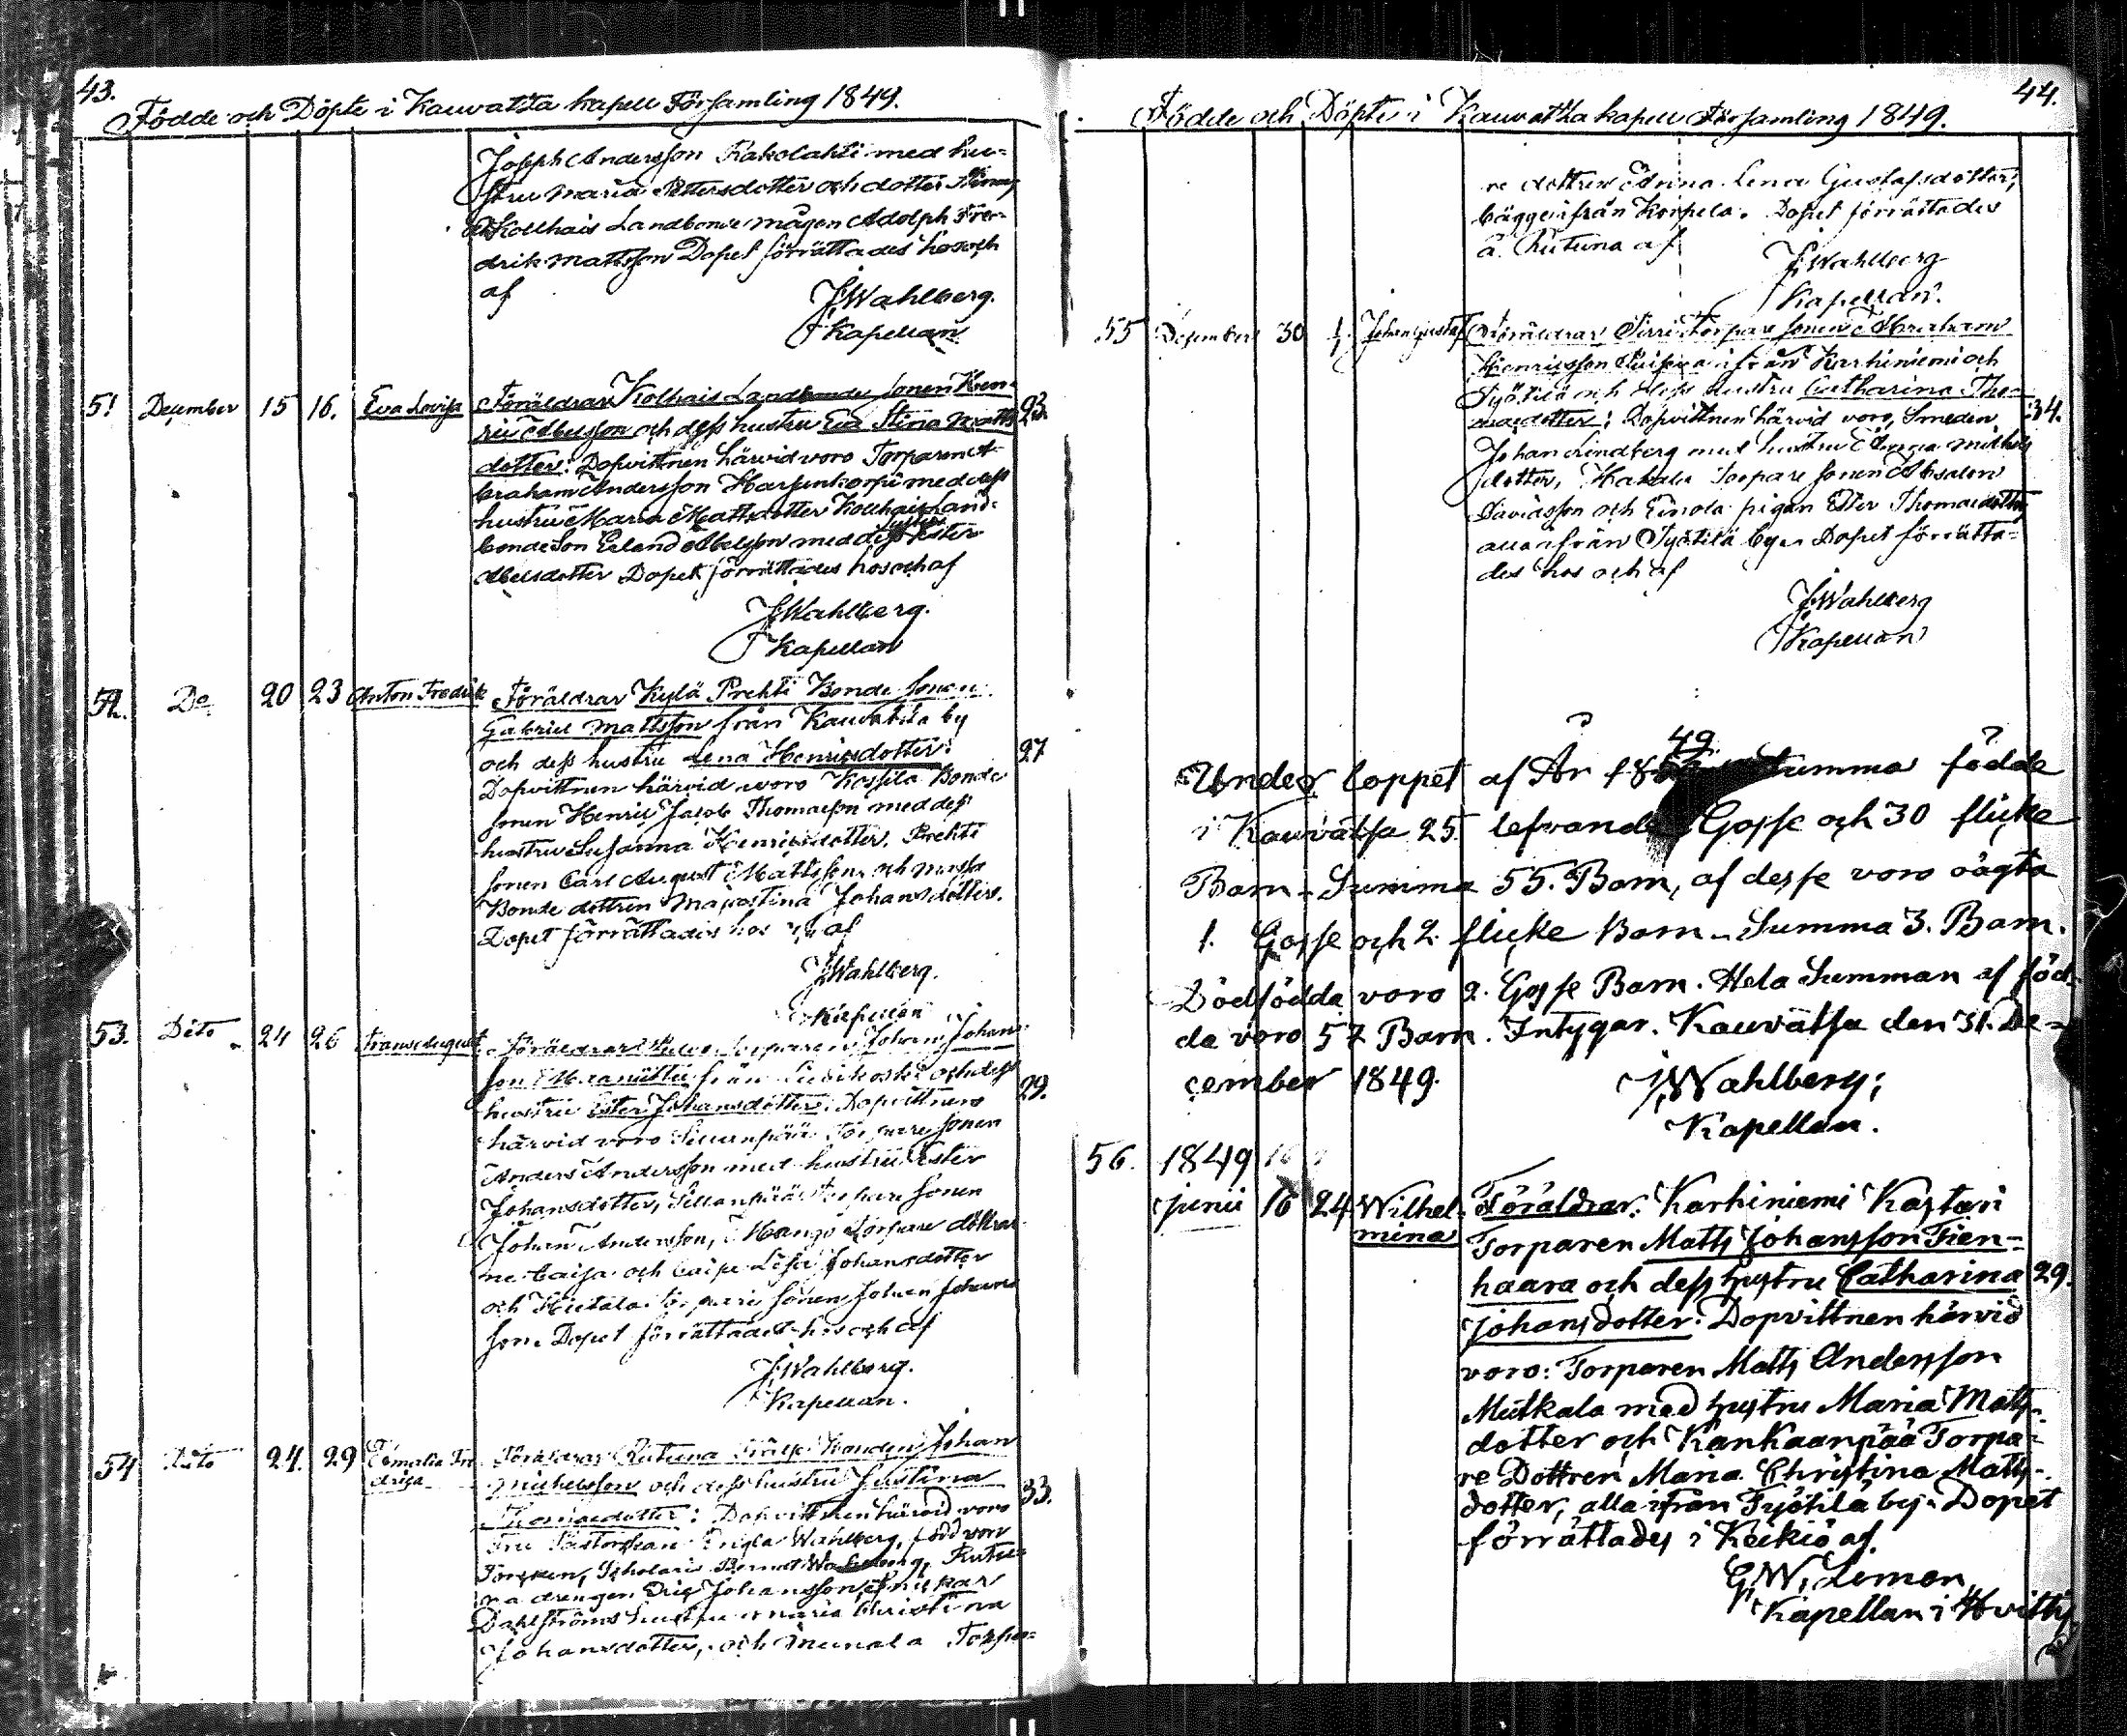 43.
Födde och Döpte i Kauvatsa kapell Församling 1849.
Joseph Andersson Kakolahti med hu-
stru Maria Pettersdotter och dotter
Kollhais Landbonde mågen Adolph Fre-
drik Mattsson Dopet förrättades hos och
af
JWahlberg.
Kapellan
51 December 15 16. Eva Lovisa Föräldrar Kolhais Landbonde Sonen Hen-
ric Abelsson och dess hustru Eva Stina Matts 23.
dotter: Dopvittnen härvid voro Torparen A-
braham Andersson Harjunkorpi med dess
hustru Maria Mattsdotter Kollhais Land-
bonde Son Erland Abelsson med dess syster Ester
Abelsdotter Dopet förrättades hos och af
JWahlberg.
Kapellan
52. Do 20 23 Anton Fredrik Föräldrar Kylä Prehti Bonde Sonen
Gabriel Mattsson från Kauvatsa by
och dess hustru Lena Henricsdotter: 27
Dopvittnen härvid voro Kossila Bonde
Sonen Henric Jacob Thomasson med dess
hustru Susanna Henricsdotter, Prehti
Sonen Carl August Mattsson och
Bonde dottren Maja Stina Johansdotter.
Dopet förrättades hos och af
JWahlberg.
Kapellan
53. Dito 24 26 Frans August Föräldrar Torparen Johan Johans
son från och dess
hustru Ester Johansdotter: Dopvittnen 29.
härvid voro Sillanpää Torpare Sonen
Anders Andersson med hustru Ester
Johansdotter, Sillanpää Torpare Sonen
Johan Andersson, Mangs Torpare döttrar
ne Caisa och Caisa Lisa Johansdotter
och Hietala Torpare Sonen Johan Johans
son. Dopet förrättades hos och af
JWahlberg.
Kapellan.
54 Dito 24. 29 Amalia Fre Föräldrar Rutuna Johan
drica Michelsson och dess hustru Justina 33.
Thomasdotter: Dopvittnen härvid voro
Fru Pastorskan Wahlberg, född von
Scholaris Bernt Wahlberg, Rutu-
na drengen Eric Johansson,
Dahlströms hustru Maria Christina
Johansdotter, och Torpa-
44.
Födde och Döpte i Kauvatsa kapell Församling 1849.
re dottren Anna Lena Gustafsdotter,
bägge ifrån Korpela. Dopet förrättades
å Rutuna af
JWahlberg
Kapellan.
55 December 30 1. Johan Gustaf Föräldrar Torpare Sonen Abraham
Henricsson från Karhiniemi och
Työtilä och dess hustru Catharina Tho-
masdotter: Dopvittnen härvid voro, Smeden 34.
Johan Lindberg med hustru Anna Michels
dotter, Hakala Torpare Sonen Absalon
Davidsson och Einola pigan Ester Thomasdotter
alla ifrån Työtilä by. Dopet förrätta-
des hos och af
JWahlberg
Kapellan
Under loppet af År 1849 Summa födde
i Kauvatsa 25. lefvande Gosse och 30 flicke
Barn - Summa 55. Barn, af desse voro oägta
1. Gosse och 2. flicke Barn - Summa 3. Barn.
Dödfödda voro 2. Gosse Barn. Hela Summan af föd-
da voro 57 Barn. Intygar. Kauvatsa den 31. De-
cember 1849. JWahlberg;
Kapellan.
56. 1849
junii 16 24 Wilhel- Föräldrar: Karhiniemi Kastari
mina Torparen Matts Johansson Fien-
haara och dess hustru Catharina 29.
Johansdotter: Dopvittnen härvid
voro: Torparen Matts Andersson
Mutkala med hustru Maria Matts-
dotter och Kankaanpää Torpa-
re Dottren Maria Christina Matts-
dotter, alla ifrån Työtilä by. Dopet
förrättades i Keikiö af.
G.W. Limon
Kapellan i Hvittis